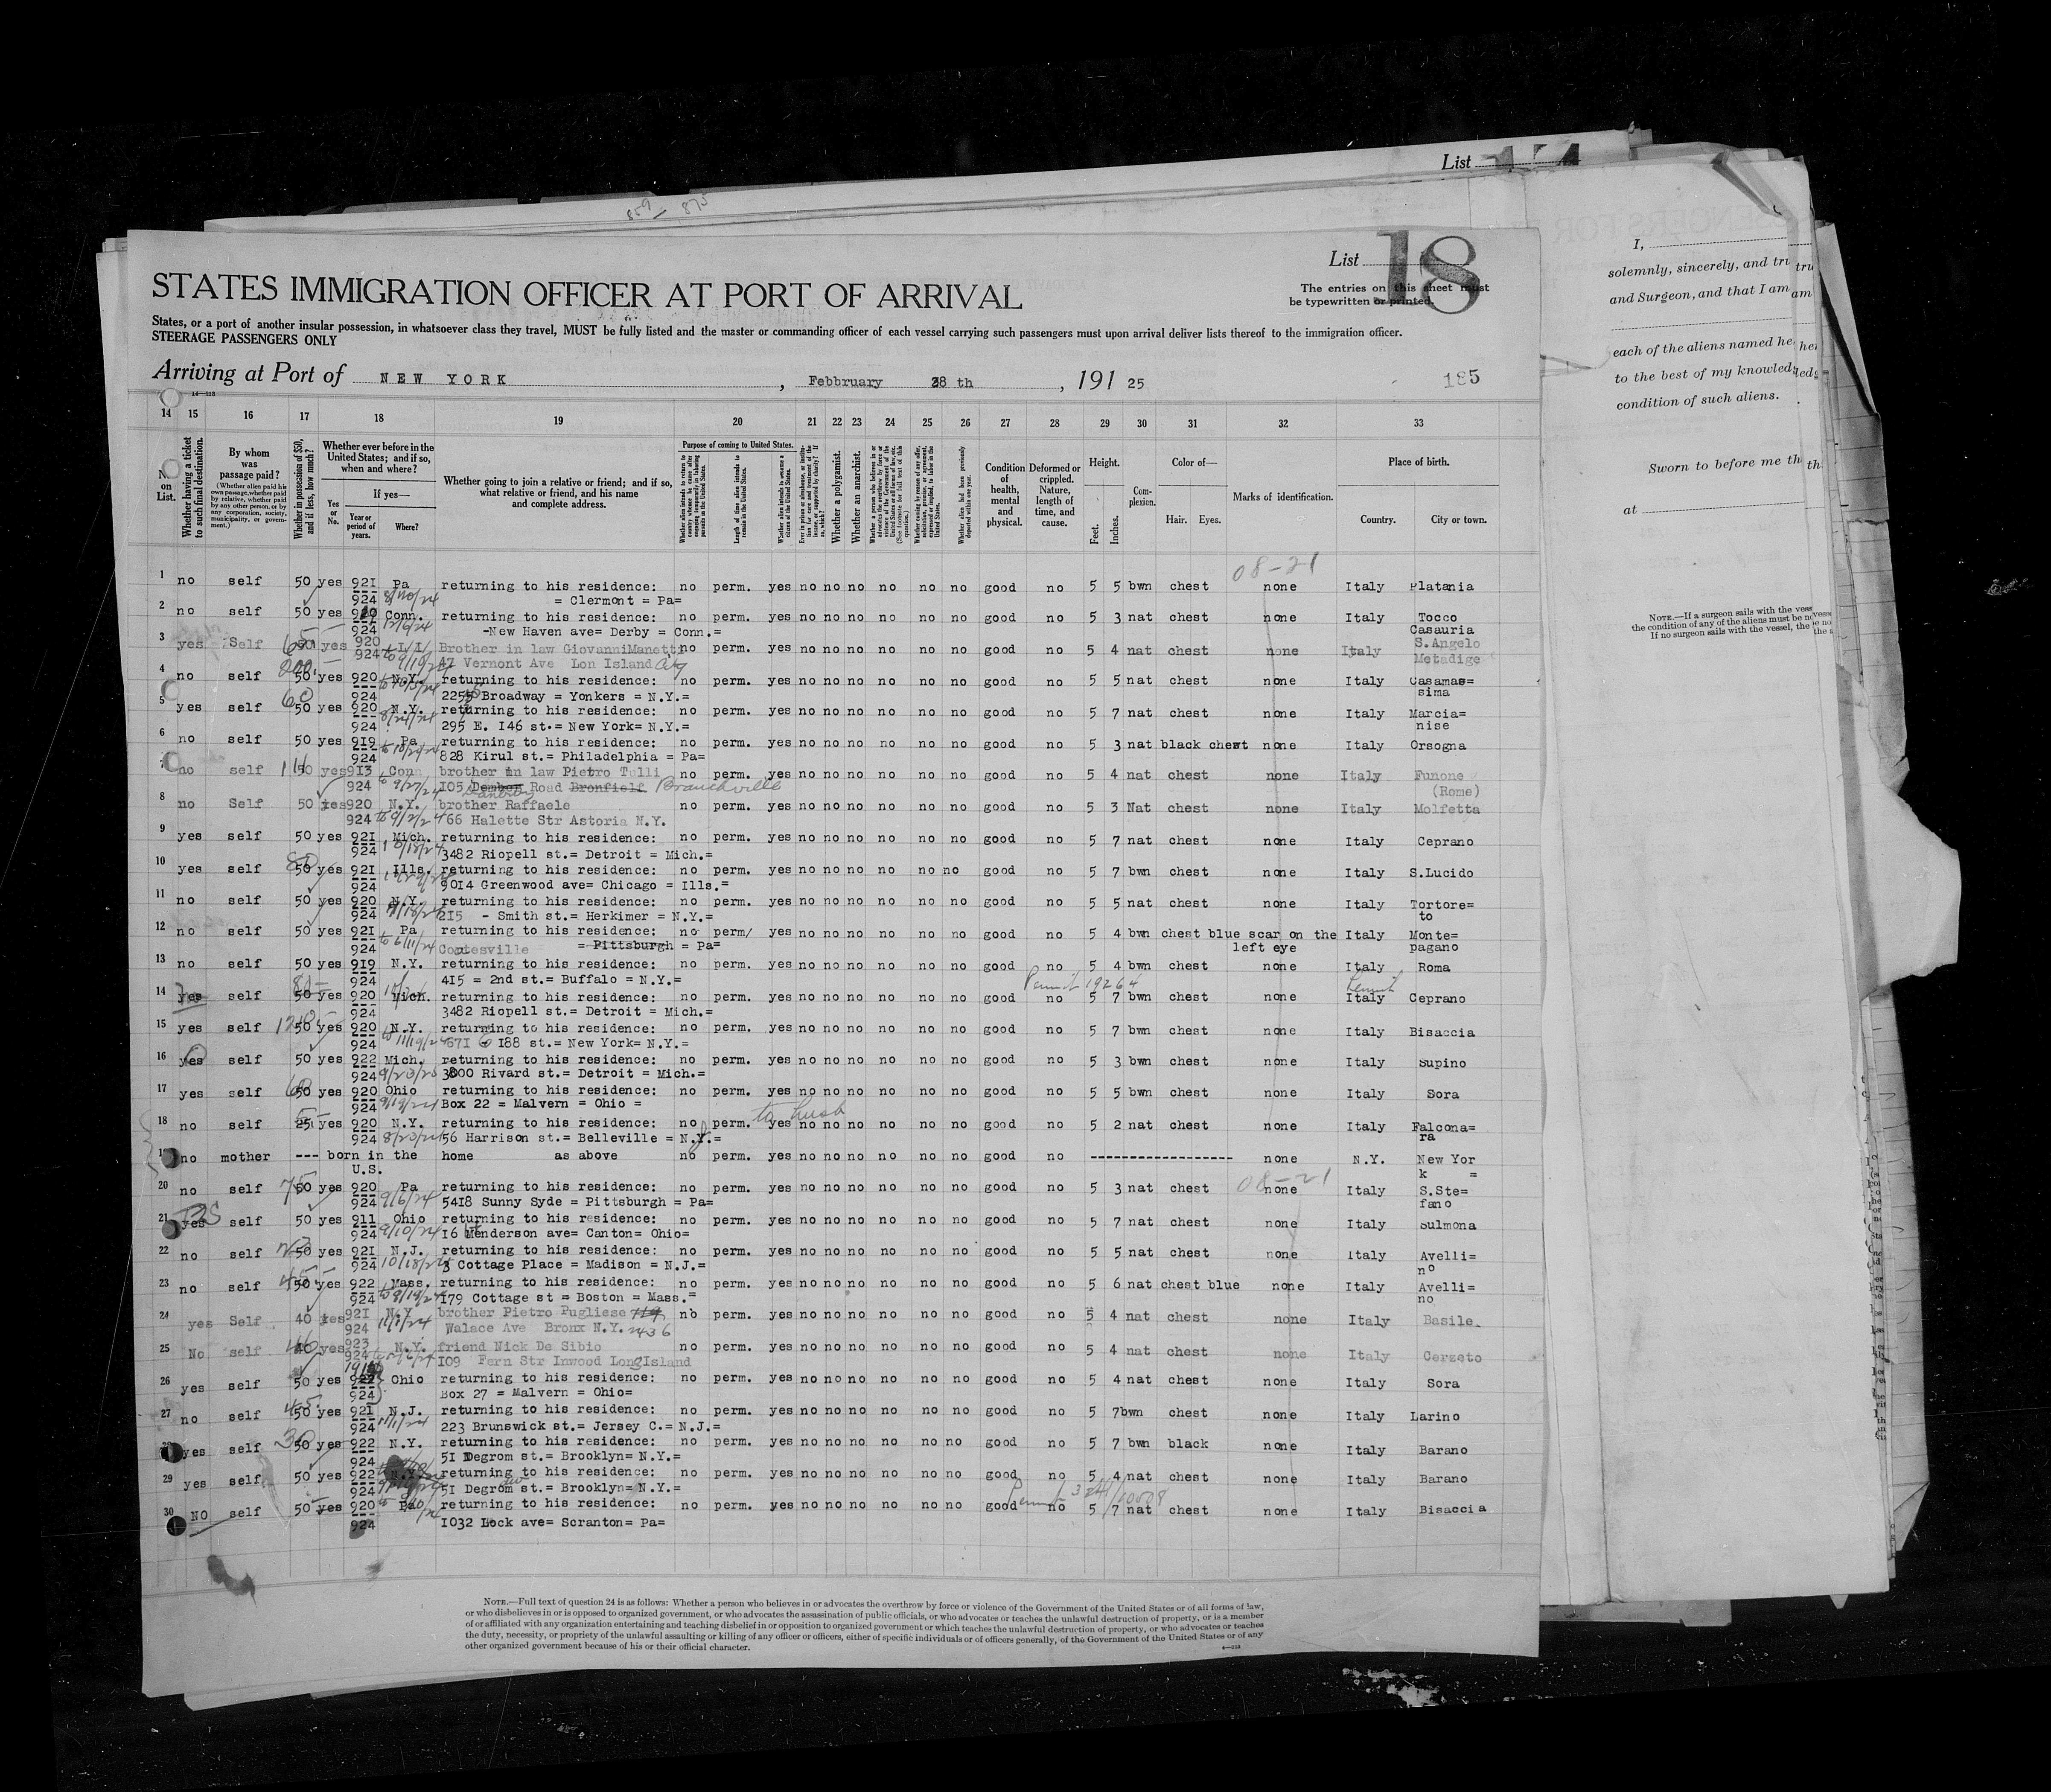 List
859 875
List 18
STATES IMMIGRATION OFFICER AT PORT OF ARRIVAL
The entries on this sheet must
be typewritten or printed.
States, or a port of another insular possession, in whatsoever class they travel, MUST be fully listed and the master or commanding officer of each vessel carrying such passengers must upon arrival deliver lists thereof to the immigration officer.
STEERAGE PASSENGERS ONLY
Arriving at Port of NEW YORK, Febbruary 28 th, 191 25
185
14 15 16 17 18 19 20 21 22 23 24 25 26 27 28 29 30 31 32 33
No. on List.
Whether having a ticket to such final destination.
By whom was passage paid?
(Whether alien paid his own passage, whether paid by relative, whether paid by any other person, or by any corporation, society, municipality, or government.)
Whether in possession of $50, and if less, how much?
Whether ever before in the United States; and if so, when and where?
Yes or No.
If yes—
Year or period of years.
Where?
Whether going to join a relative or friend; and if so, what relative or friend, and his name and complete address.
Purpose of coming to United States.
Length of time alien intends to remain in the United States.
Whether alien intends to become a citizen of the United States.
Whether a polygamist.
Whether an anarchist.
Condition of health, mental and physical.
Deformed or crippled. Nature, length of time, and cause.
Height.
Feet. Inches.
Complexion.
Color of—
Hair. Eyes.
Marks of identification.
Place of birth.
Country. City or town.
08-21
1 no self 50 yes 921 Pa returning to his residence: no perm. yes no no no no no no good no 5 5 bwn chest none Italy Platania
924 = Clermont = Pa=
2 no self 50 yes Conn. returning to his residence: no perm. yes no no no no no no good no 5 3 nat chest none Italy Tocco
924 -New Haven ave= Derby = Conn.= Casauria
3 yes Self yes 920 Brother in law GiovanniManetti no perm. yes no no no no no no good no 5 4 nat chest none Italy S.Angelo
924 47 Vernont Ave Lon Island City Metadige
4 no self 50 yes 920 N.Y. returning to his residence: no perm. yes no no no no no no good no 5 5 nat chest none Italy Casamas=
924 Broadway = Yonkers = N.Y.= sima
5 yes self 60 50 yes 920 N.Y. returning to his residence: no perm. yes no no no no no no good no 5 7 nat chest none Italy Marcia=
924 295 E. I46 st.= New York= N.Y.= nise
6 no self 50 yes 919 Pa returning to his residence: no perm. yes no no no no no no good no 5 3 nat black chest none Italy Orsogna
924 828 Kirul st.= Philadelphia = Pa=
7 no self yes 913 Conn brother in law Pietro Tulli no perm. yes no no no no no no good no 5 4 nat chest none Italy Funone
924 I05 Road Bronfielf Branchville (Rome)
8 no Self 50 yes 920 N.Y. brother Raffaele no perm. yes no no no no no no good no 5 3 Nat chest none Italy Molfetta
924 to 9/2/24 66 Halette Str Astoria N.Y.
9 yes self 50 yes 92I Mich. returning to his residence: no perm. yes no no no no no no good no 5 7 nat chest none Italy Ceprano
924 3482 Riopell st.= Detroit = Mich.=
10 yes self 80 50 yes 92I Ills. returning to his residence: no perm. yes no no no no no no good no 5 7 bwn chest none Italy S.Lucido
924 90I4 Greenwood ave= Chicago = Ills.=
11 no self 50 yes 920 N.Y. returning to his residence: no perm. yes no no no no no no good no 5 5 nat chest none Italy Tortore=
924 2I5 - Smith st.= Herkimer = N.Y.= to
12 no self 50 yes 92I Pa returning to his residence: no perm/ yes no no no no no no good no 5 4 bwn chest blue scar on the Italy Monte=
924 to 6/11/24 Coatesville = Pittsburgh = Pa= left eye pagano
13 no self 50 yes 9I9 N.Y. returning to his residence: no perm. yes no no no no no no good no 5 4 bwn chest none Italy Roma
924 4I5 = 2nd st.= Buffalo = N.Y.= Permit 19264
14 yes self 50 yes 920 Mich. returning to his residence: no perm. yes no no no no no no good no 5 7 bwn chest none Italy Ceprano
924 3482 Riopell st.= Detroit = Mich.=
15 yes self 50 yes 920 N.Y. returning to his residence: no perm. yes no no no no no no good no 5 7 bwn chest none Italy Bisaccia
924 I88 st.= New York= N.Y.=
16 yes self 50 yes 922 Mich. returning to his residence: no perm. yes no no no no no no good no 5 3 bwn chest none Italy Supino
924 3800 Rivard st.= Detroit = Mich.=
17 yes self 50 yes 920 Ohio returning to his residence: no perm. yes no no no no no no good no 5 5 bwn chest none Italy Sora
924 9/19/24 Box 22 = Malvern = Ohio =
to husb
18 no self yes 920 N.Y. returning to his residence: no perm. yes no no no no no no good no 5 2 nat chest none Italy Falcona=
924 8/23/24 56 Harrison st.= Belleville = N.Y.= ra
no mother --- born in the home as above no perm. yes no no no no no no good no ------------------ none N.Y. New Yor
U.S. k =
08-21
20 no self 75 50 yes 920 Pa returning to his residence: no perm. yes no no no no no no good no 5 3 nat chest none Italy S.Ste=
924 9/6/24 54I8 Sunny Syde = Pittsburgh = Pa= fano
21 yes self 50 yes 911 Ohio returning to his residence: no perm. yes no no no no no no good no 5 7 nat chest none Italy Sulmona
924 9/10/24 I6 Henderson ave= Canton= Ohio=
22 no self 50 yes 92I N.J. returning to his residence: no perm. yes no no no no no no good no 5 5 nat chest none Italy Avelli=
924 10/18/24 Cottage Place = Madison = N.J.= no
23 no self 45 50 yes 922 Mass. returning to his residence: no perm. yes no no no no no no good no 5 6 nat chest blue none Italy Avelli=
924 to 9/19/24 I79 Cottage st = Boston = Mass.= no
24 yes Self 40 yes 92I N.Y. brother Pietro Pugliese no perm. yes no no no no no no good no 5 4 nat chest none Italy Basile
924 Walace Ave Bronx N.Y. 2436
25 No self yes 923 N.Y. friend Nick De Sibio no perm. yes no no no no no no good no 5 4 nat chest none Italy Cerzeto
924 I09 Fern Str Inwood LongIsland
26 yes self 50 yes Ohio returning to his residence: no perm. yes no no no no no no good no 5 4 nat chest none Italy Sora
924 Box 27 = Malvern = Ohio=
27 no self 45 50 yes 921 N.J. returning to his residence: no perm. yes no no no no no no good no 5 7bwn chest none Italy Larino
924 11/1/24 223 Brunswick st.= Jersey C.= N.J.=
yes self 30 50 yes 922 N.Y. returning to his residence: no perm. yes no no no no no no good no 5 7 bwn black none Italy Barano
924 5I Degrom st.= Brooklyn= N.Y.=
29 yes self 50 yes 922 N.Y. returning to his residence: no perm. yes no no no no no no good no 5 4 nat chest none Italy Barano
924 5I Degrom st.= Brooklyn= N.Y.=
30 NO self 50 yes 920 returning to his residence: no perm. yes no no no no no no good no 5 7 nat chest none Italy Bisaccia
924 I032 Lock ave= Scranton= Pa=
NOTE.—Full text of question 24 is as follows: Whether a person who believes in or advocates the overthrow by force or violence of the Government of the United States or of all forms of law,
or who disbelieves in or is opposed to organized government, or who advocates the assassination of public officials, or who advocates or teaches the unlawful destruction of property, or is a member
of or affiliated with any organization entertaining and teaching disbelief in or opposition to organized government or which teaches the unlawful destruction of property, or who advocates or teaches
the duty, necessity, or propriety of the unlawful assaulting or killing of any officer or officers, either of specific individuals or of officers generally, of the Government of the United States or of any
other organized government because of his or their official character.
I,
solemnly, sincerely, and tru
and Surgeon, and that I am
each of the aliens named he
to the best of my knowled
condition of such aliens.
Sworn to before me th
at
NOTE.—If a surgeon sails with the vess
the condition of any of the aliens must be no
If no surgeon sails with the vessel, the